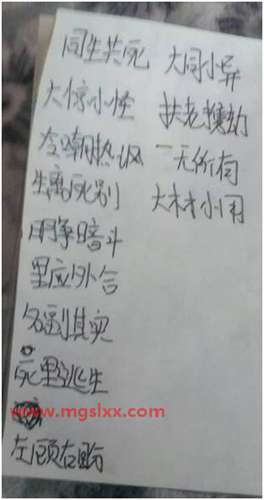 同生共死 大同小异
大惊小怪 扶老携幼
冷嘲热讽 一无所有
生离死别 大材小用
明争暗斗
里应外合
名副其实
死里逃生
www.mgslxx.com
左顾右盼